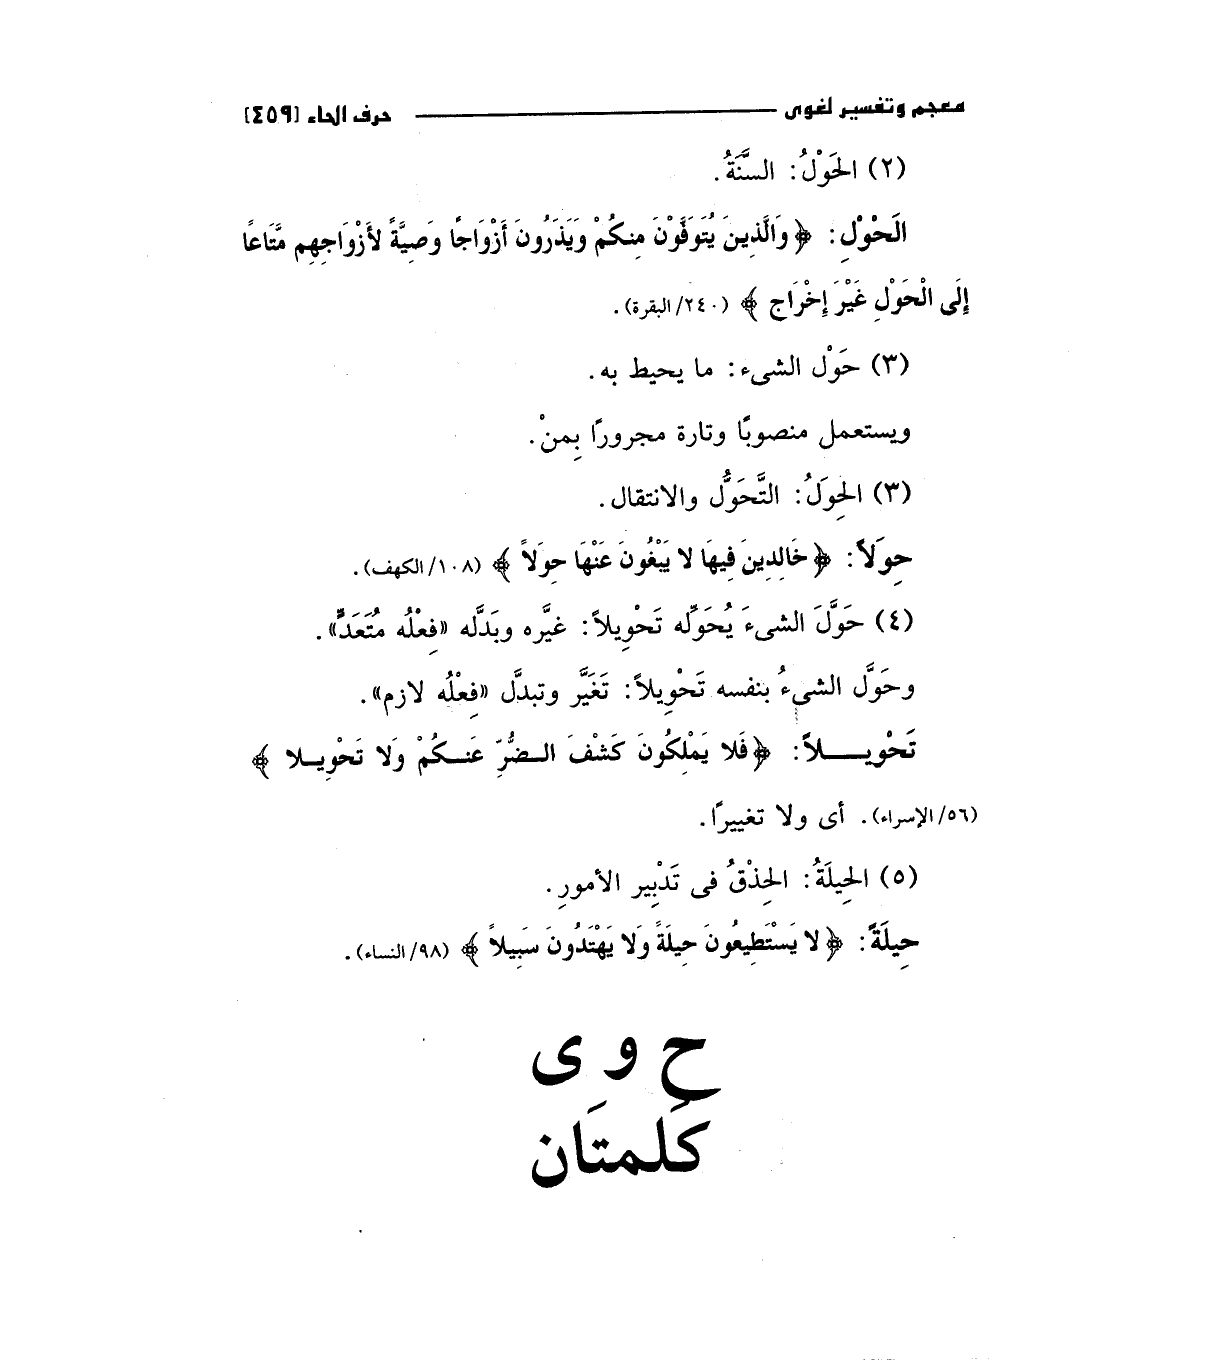 معجم وتفسير لغوى ــــــــــ حرف الحاء [٤٥٩]
(٢) الحَوْلُ: السَّنَةُ.
الَحْوْلِ: ﴿وَالَّذِينَ يُتَوَفَّوْنَ مِنكُمْ وَيَذَرُونَ أَزْوَاجًا وَصِيَّةً لأَزْوَاجِهِم مَّتَاعًا
إِلَى الْحَوْلِ غَيْرَ إِخْرَاجٍ ﴾ (٢٤٠/البقرة).
(٣) حَوْل الشىء: ما يحيط به.
ويستعمل منصوبًا وتارة مجرورًا بِمنْ.
(٣) الحِوَلُ: التَّحَوُّل والانتقال.
حِوَلاً: ﴿خَالِدِينَ فِيهَا لا يَبْغُونَ عَنْهَا حِوَلاً ﴾ (١٠٨/الكهف).
(٤) حَوَّلَ الشىءَ يُحَوِّله تَحْوِيلاً: غيَّره وبَدَّله «فِعْلُه مُتَعَدٍّ».
وحَوَّل الشىءُ بنفسه تَحْوِيلاً: تَغَيَّر وتبدَّل «فِعْلُه لازم».
تَحْوِيـــلاً: ﴿فَلا يَمْلِكُونَ كَشْفَ الـضُّرِّ عَنـكُمْ وَلا تَحْوِيـلا ﴾
(٥٦/الإسراء). أى ولا تغييرًا.
(٥) الحِيلَةُ: الحِذْقُ فى تَدْبِير الأمورِ.
حِيلَةً: ﴿لا يَسْتَطِيعُونَ حِيلَةً وَلا يَهْتَدُونَ سَبِيلاً ﴾ (٩٨/النساء).
ح و ى
كَلِمتَان